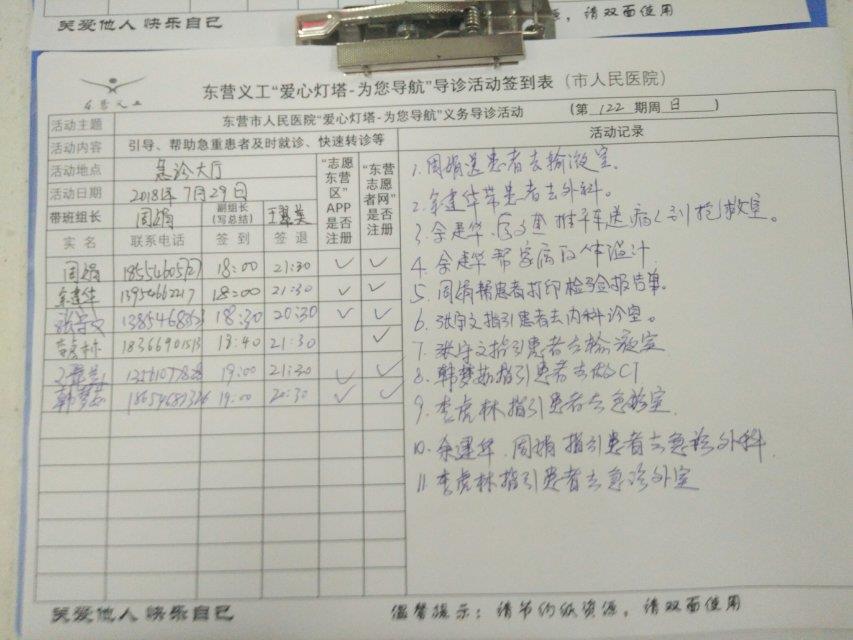 关爱他人 快乐自己
，请双面使用
东营义工
东营义工“爱心灯塔-为您导航”导诊活动签到表（市人民医院）
活动主题 东营市人民医院“爱心灯塔-为您导航”义务导诊活动 （第 122 期周 日 ）
活动内容 引导、帮助急重患者及时就诊、快速转诊等
活动地点 急诊大厅
活动日期 2018年7月29日
带班组长 周娟 副组长（写总结）
“志愿东营区”APP是否注册
“东营志愿者网”是否注册
实 名 联系电话 签 到 签 退
周娟 18:00 21:30 ✓ ✓
余建华 13954662217 18:00 21:30 ✓ ✓
张守文 18:30 20:30 ✓ ✓
李虎林 18366901513 18:40 21:30 ✓
19:00 21:30 ✓ ✓
韩梦茹 19:00 20:30 ✓ ✓
活动记录
1.周娟送患者去输液室。
2.余建华带患者去外科。
3.余建华 推平车送病人到抢救室。
4.余建华帮家病
5.周娟帮患者打印检验报告单。
6.张守文指引患者去内科诊室。
7.张守文指引患者去输液室
8.韩梦茹指引患者去做CT
9.李虎林指引患者去急诊室
10.余建华.周娟指引患者去急诊外科.
11.李虎林指引患者去急诊外室
关爱他人 快乐自己
温馨提示：请节约纸资源，请双面使用